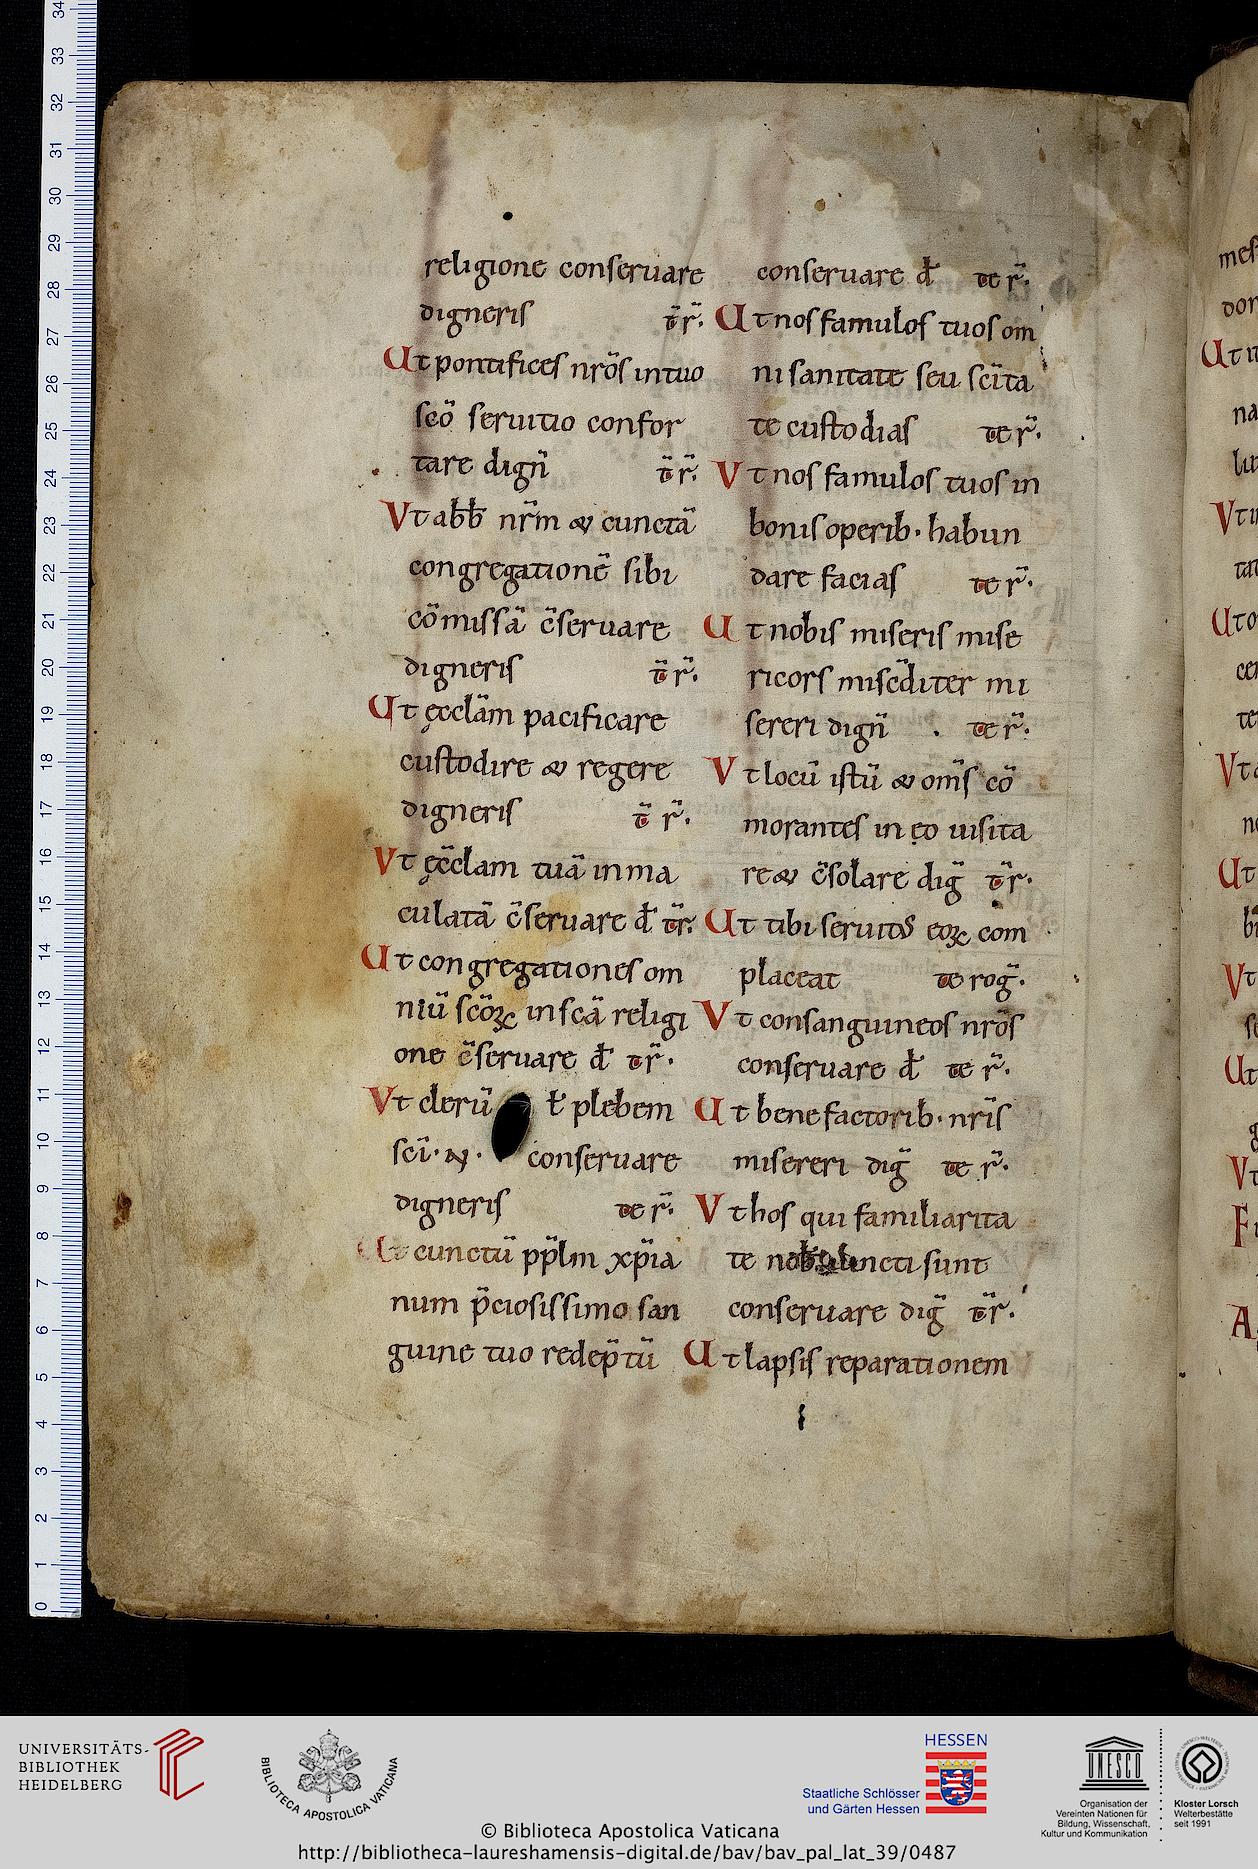 religione conseruare
digneris t̄ r̄.
Ut pontifices nr̄os in tuo
sc̄o seruitio confor
tare dign̄ t̄ r̄.
Vt abb̄ nr̄m & cunctā
congregationē sibi
cōmissā c̄seruare
digneris t̄ r̄.
Ut ęccl̄am pacificare
custodire & regere
digneris t̄ r̄.
Vt ęccl̄am tuā inma
culatā c̄seruare d̄ t̄ r̄.
Ut congregationes om
niū sc̄oꝝ in sc̄a religi
one c̄seruare d̄ t̄ r̄.
Vt clerū ł plebem
sc̄i .N. conseruare
digneris te r̄.
Ut cunctū pp̄lm xp̄ia
num p̄ciosissimo san
guine tuo redēptū
conseruare d̄ te r̄.
Ut nos famulos tuos om
ni sanitate seu sc̄ita
te custodias te r̄.
Vt nos famulos tuos in
bonis operib· habun
dare facias te r̄.
Ut nobis miseris mise
ricors misc̄diter mi
sereri dign̄ . te r̄.
Vt locū istū & om̄s cō
morantes in eo uisita
re & c̄solare diḡ t̄ r̄.
Ut tibi seruitꝰ eoꝝ com
placeat te roḡ.
Vt consanguineos nr̄os
conseruare d̄ te r̄.
Ut benefactorib· nr̄is
misereri diḡ te r̄.
Vt hos qui familiarita
te nob̄ iuncti sunt
conseruare diḡ t̄ r̄.
Ut lapsis reparationem
UNIVERSITÄTS-
BIBLIOTHEK
HEIDELBERG
BIBLIOTECA APOSTOLICA VATICANA
HESSEN
Staatliche Schlösser
und Gärten Hessen
UNESCO
Organisation der
Vereinten Nationen für
Bildung, Wissenschaft,
Kultur und Kommunikation
Kloster Lorsch
Welterbestätte
seit 1991
© Biblioteca Apostolica Vaticana
http://bibliotheca-laureshamensis-digital.de/bav/bav_pal_lat_39/0487